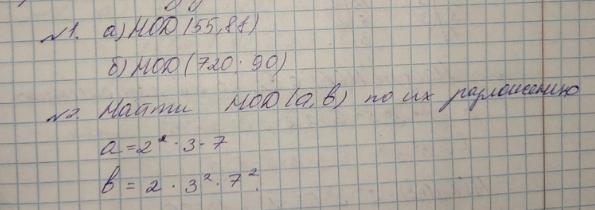 №1. а) НОД (55, 88)
б) НОД (720; 90)
№2. Найти НОД (a, b) по их разложению
a = 2² · 3 · 7
b = 2 · 3² · 7².